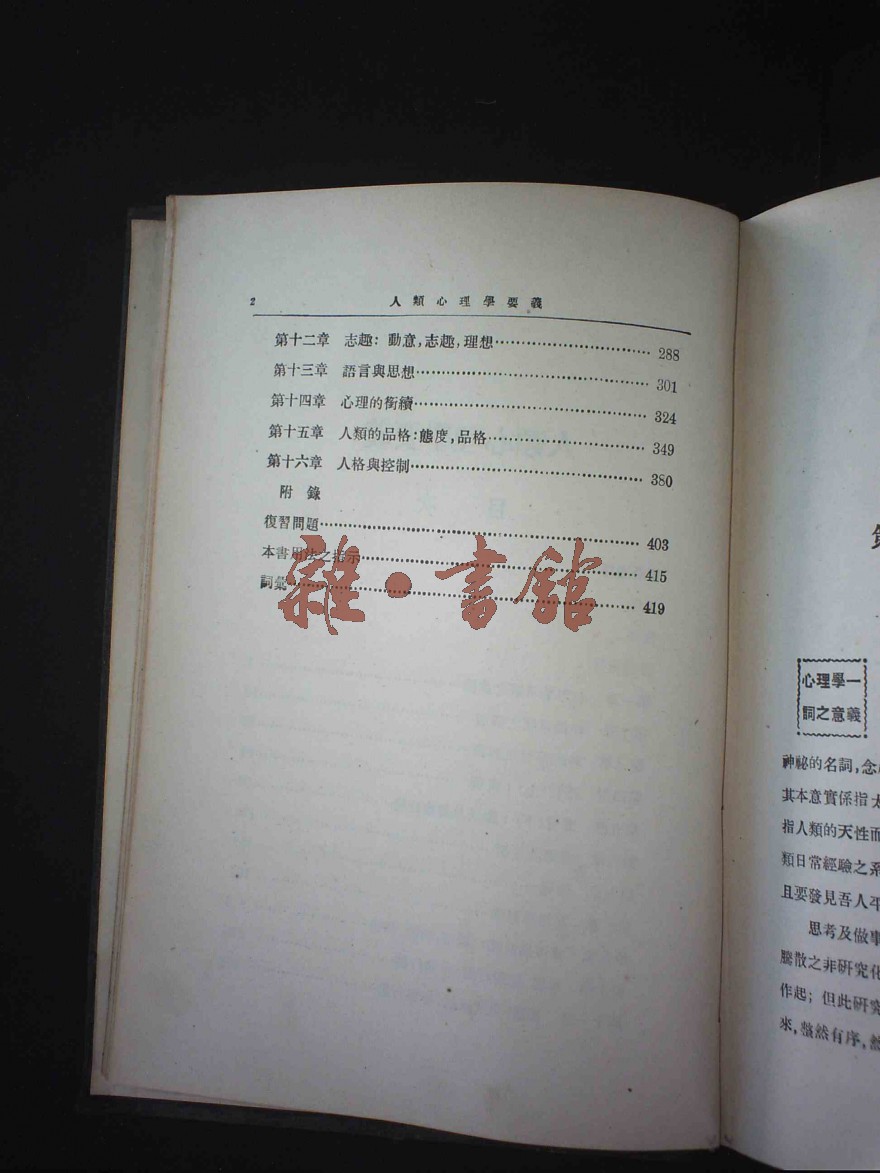 2
人類心理學要義
第十二章 志趣：動意，志趣，理想……288
第十三章 語言與思想……301
第十四章 心理的銜續……324
第十五章 人類的品格：態度，品格……349
第十六章 人格與控制……380
附錄
復習問題……403
本書用法之指示……415
詞彙……419
雜·書館
心理學一
詞之意義
神祕的名詞，念
其本意實係指
指人類的天性而
類日常經驗之系
且要發見吾人平
思考及做事
騰散之非研究化
作起；但此研究
來，整然有序，